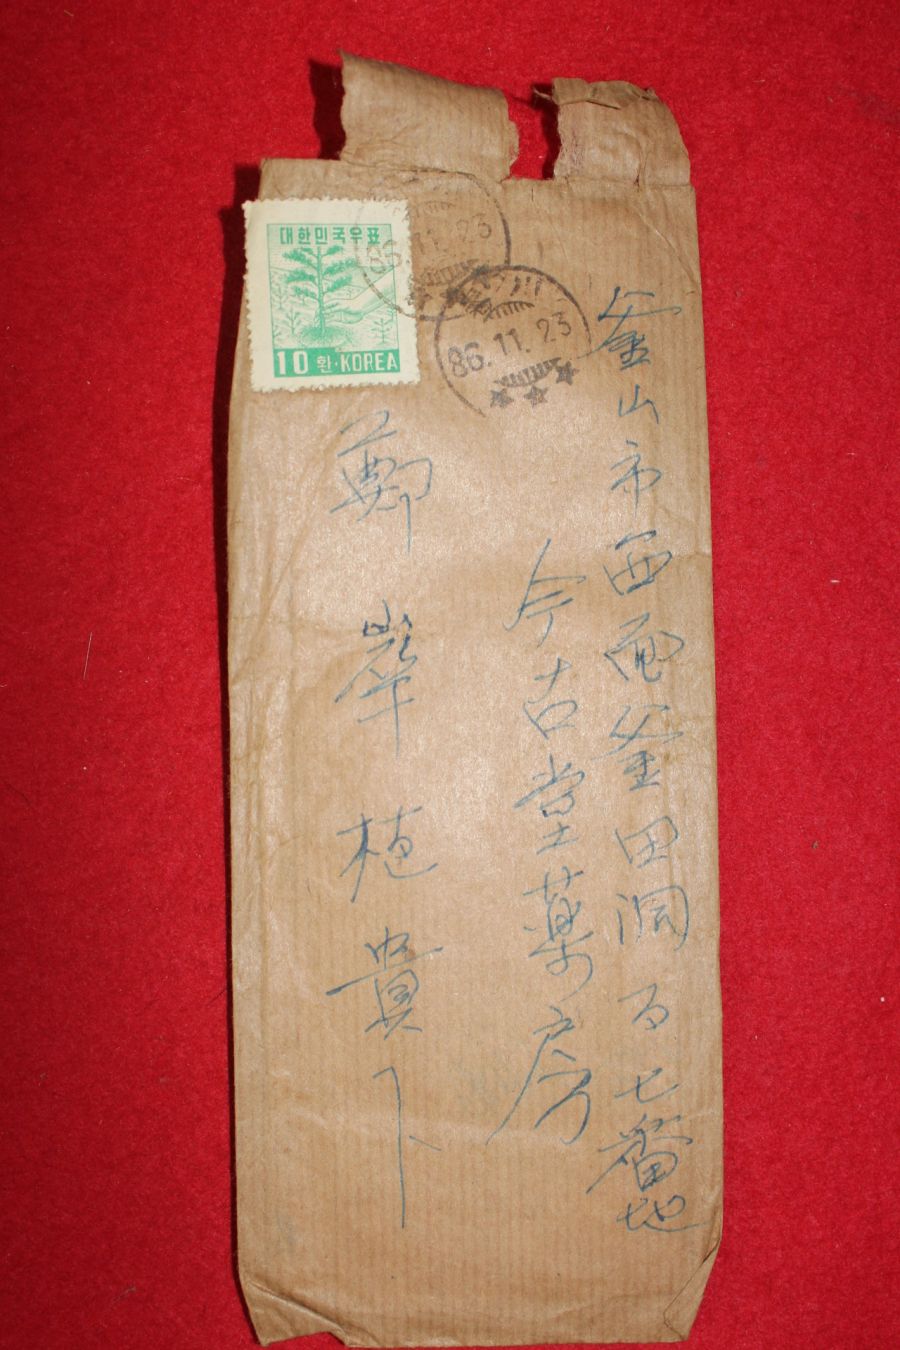 대한민국우표
10환·KOREA
86.11.23
86.11.23
釜山市西面釜田洞百七番地
今古堂薬房
鄭 植貴下